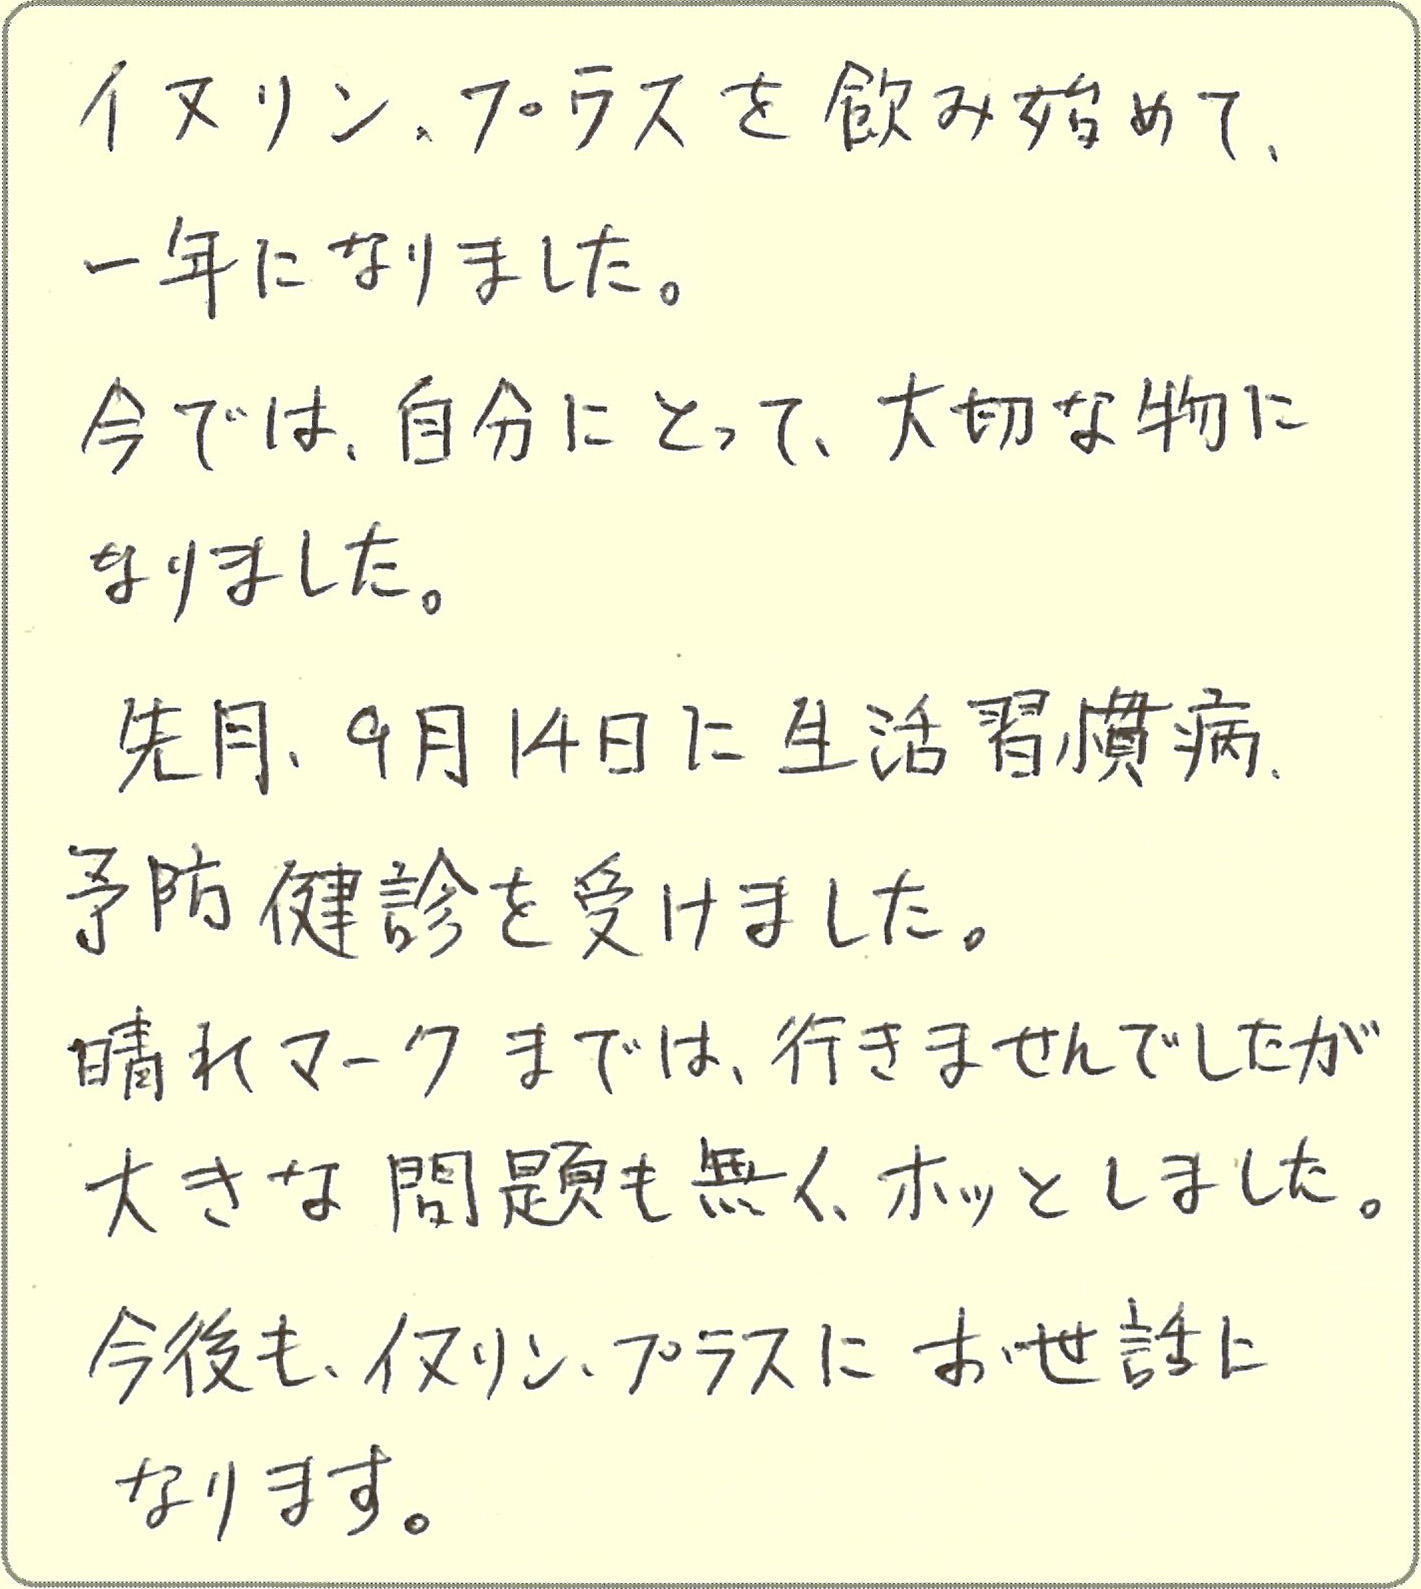 イヌリン、プラスを飲み始めて、
一年になりました。
今では、自分にとって、大切な物に
なりました。
先月、9月14日に生活習慣病、
予防健診を受けました。
晴れマークまでは、行きませんでしたが
大きな問題も無く、ホッとしました。
今後も、イヌリン、プラスにお世話に
なります。